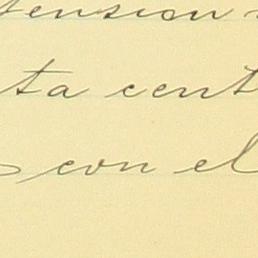 tension
ta cent
con el